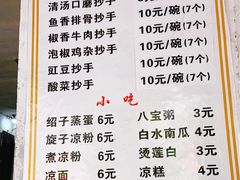 清汤口磨抄手 10元/碗(7个)
鱼香排骨抄手 10元/碗(7个)
椒香牛肉抄手 10元/碗(7个)
泡椒鸡杂抄手 10元/碗(7个)
豇豆抄手 10元/碗(7个)
酸菜抄手 10元/碗(7个)
小吃
绍子蒸蛋 6元 八宝粥 3元
旋子凉粉 6元 白水南瓜 4元
煮凉粉 6元 烫莲白 3元
凉面 6元 凉糕 4元